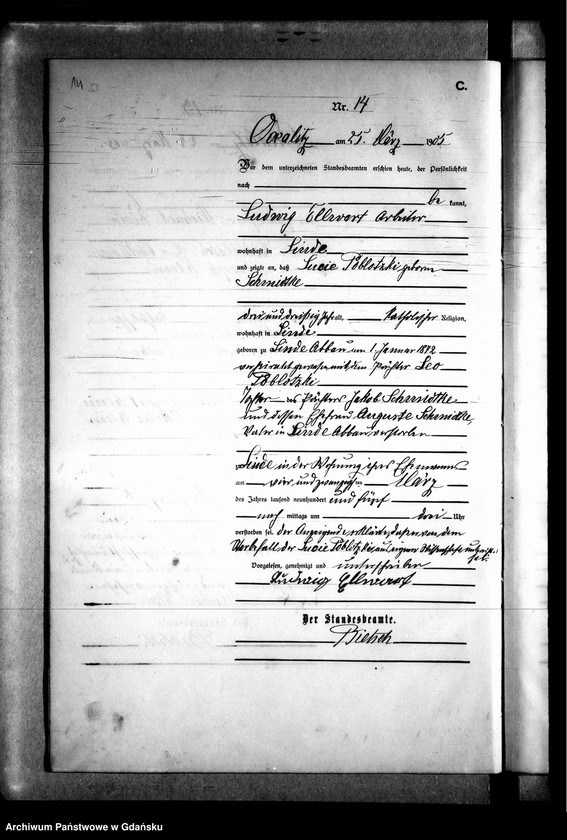 14
C.
Nr. 14
am 25. März 1905
Vor dem unterzeichneten Standesbeamten erschien heute, der Persönlichkeit
nach
be kannt,
Ludwig Ellwart Arbeiter
wohnhaft in Linde
und zeigte an, daß Lucie Poblotzki geborene
Schmidtke
drei und dreißig Jahre alt, katholischer Religion,
wohnhaft in Linde
geboren zu Linde Abbau am 1. Januar 1872
verheiratet gewesen mit dem Pächter Leo
Poblotzki
Tochter des Pächters Jakob Schmidtke
und dessen Ehefrau Auguste Schmidtke,
Vater in Linde Abbau verstorben
zu Linde in der Wohnung ihres Ehemannes
am vier und zwanzigsten März
des Jahres tausend neunhundert und fünf
nach mittags um drei Uhr
verstorben sei. Der Anzeigende erklärte, daß er von dem
Sterbefall der Lucie Poblotzki aus eigener Wissenschaft unterrichtet
sei.
Vorgelesen, genehmigt und unterschrieben
Ludwig Ellwart
Der Standesbeamte.
Archiwum Państwowe w Gdańsku